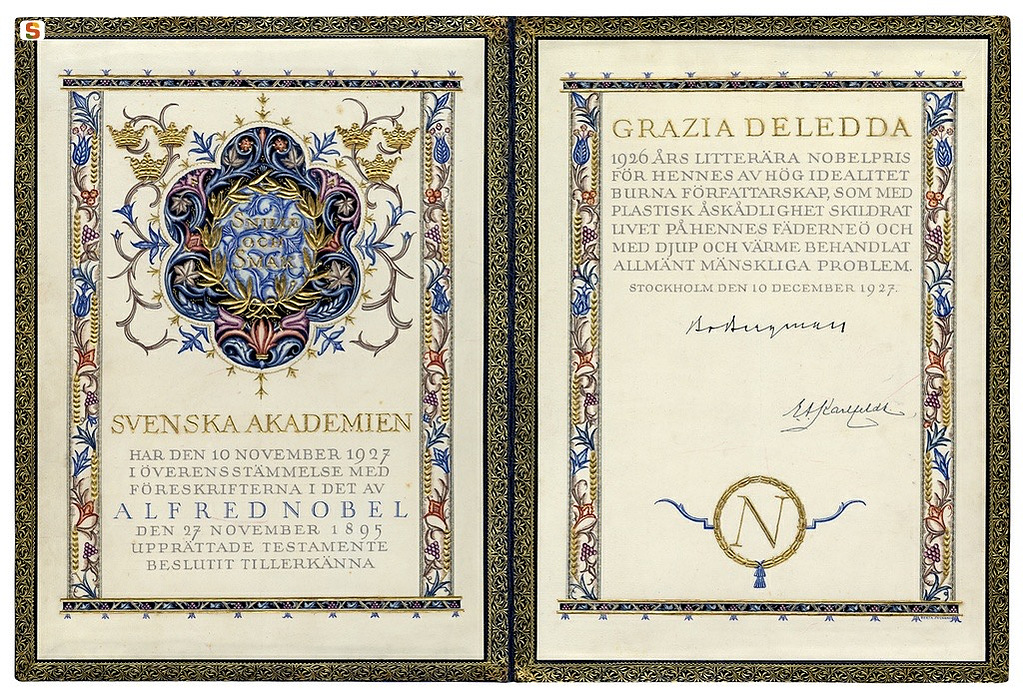 S
SNILLE
OCH
SMAK
SVENSKA AKADEMIEN
HAR DEN 10 NOVEMBER 1927
I ÖVERENSSTÄMMELSE MED
FÖRESKRIFTERNA I DET AV
ALFRED NOBEL
DEN 27 NOVEMBER 1895
UPPRÄTTADE TESTAMENTE
BESLUTIT TILLERKÄNNA
GRAZIA DELEDDA
1926 ÅRS LITTERÄRA NOBELPRIS
FÖR HENNES AV HÖG IDEALITET
BURNA FÖRFATTARSKAP, SOM MED
PLASTISK ÅSKÅDLIGHET SKILDRAT
LIVET PÅ HENNES FÄDERNEÖ OCH
MED DJUP OCH VÄRME BEHANDLAT
ALLMÄNT MÄNSKLIGA PROBLEM.
STOCKHOLM DEN 10 DECEMBER 1927.
Bo Bergman
E.A. Karlfeldt
N